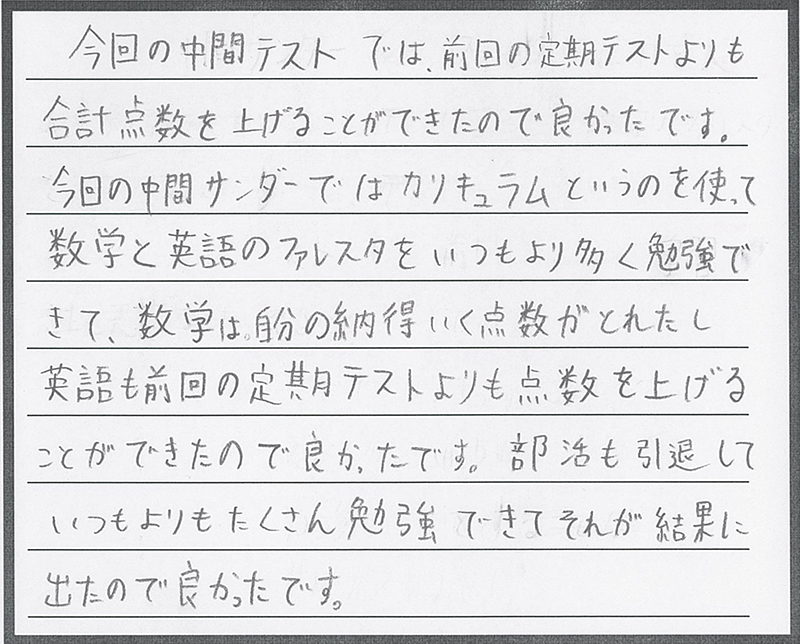 今回の中間テストでは、前回の定期テストよりも
合計点数を上げることができたので良かったです。
今回の中間サンダーではカリキュラムというのを使って
数学と英語のファレスタをいつもより多く勉強で
きて、数学は。自分の納得いく点数がとれたし
英語も前回の定期テストよりも点数を上げる
ことができたので良かったです。部活も引退して
いつもよりもたくさん勉強できてそれが結果に
出たので良かったです。